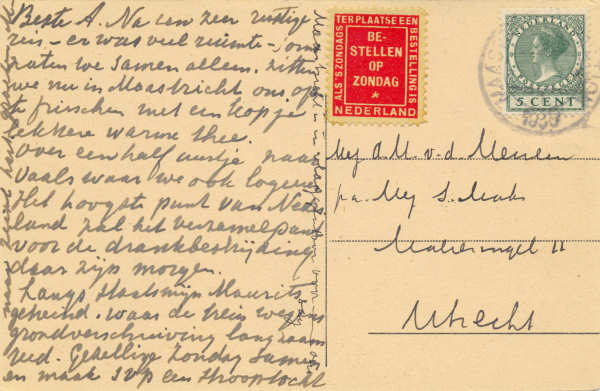 Beste A. Na een zeer rustige
reis - er was veel ruimte - om
zaten we samen alleen. Zitten
we nu in Maastricht ons op
te frisschen met een kopje
lekkere warme thee.
Over een half uurtje naar
Vaals waar we ook logeeren
Het hoogste punt van Neder
land zal het verzamelpunt
voor de drankbestrijding
daar zijn morgen.
Langs Staatsmijn Maurits
waar de trein wegens
grondverschuiving langzaam
reed. Gezellige Zondag samen
en maak svp een strooptocht
Maastricht is
ALS 'S ZONDAGS TER PLAATSE EEN BESTELLING IS
BE-
STELLEN
OP
ZONDAG
*
NEDERLAND
NEDERLAND
5 CENT
MAAS
Mej A.M. v.d. Meulen
p.a. Mej S.
Maliesingel 11
Utrecht